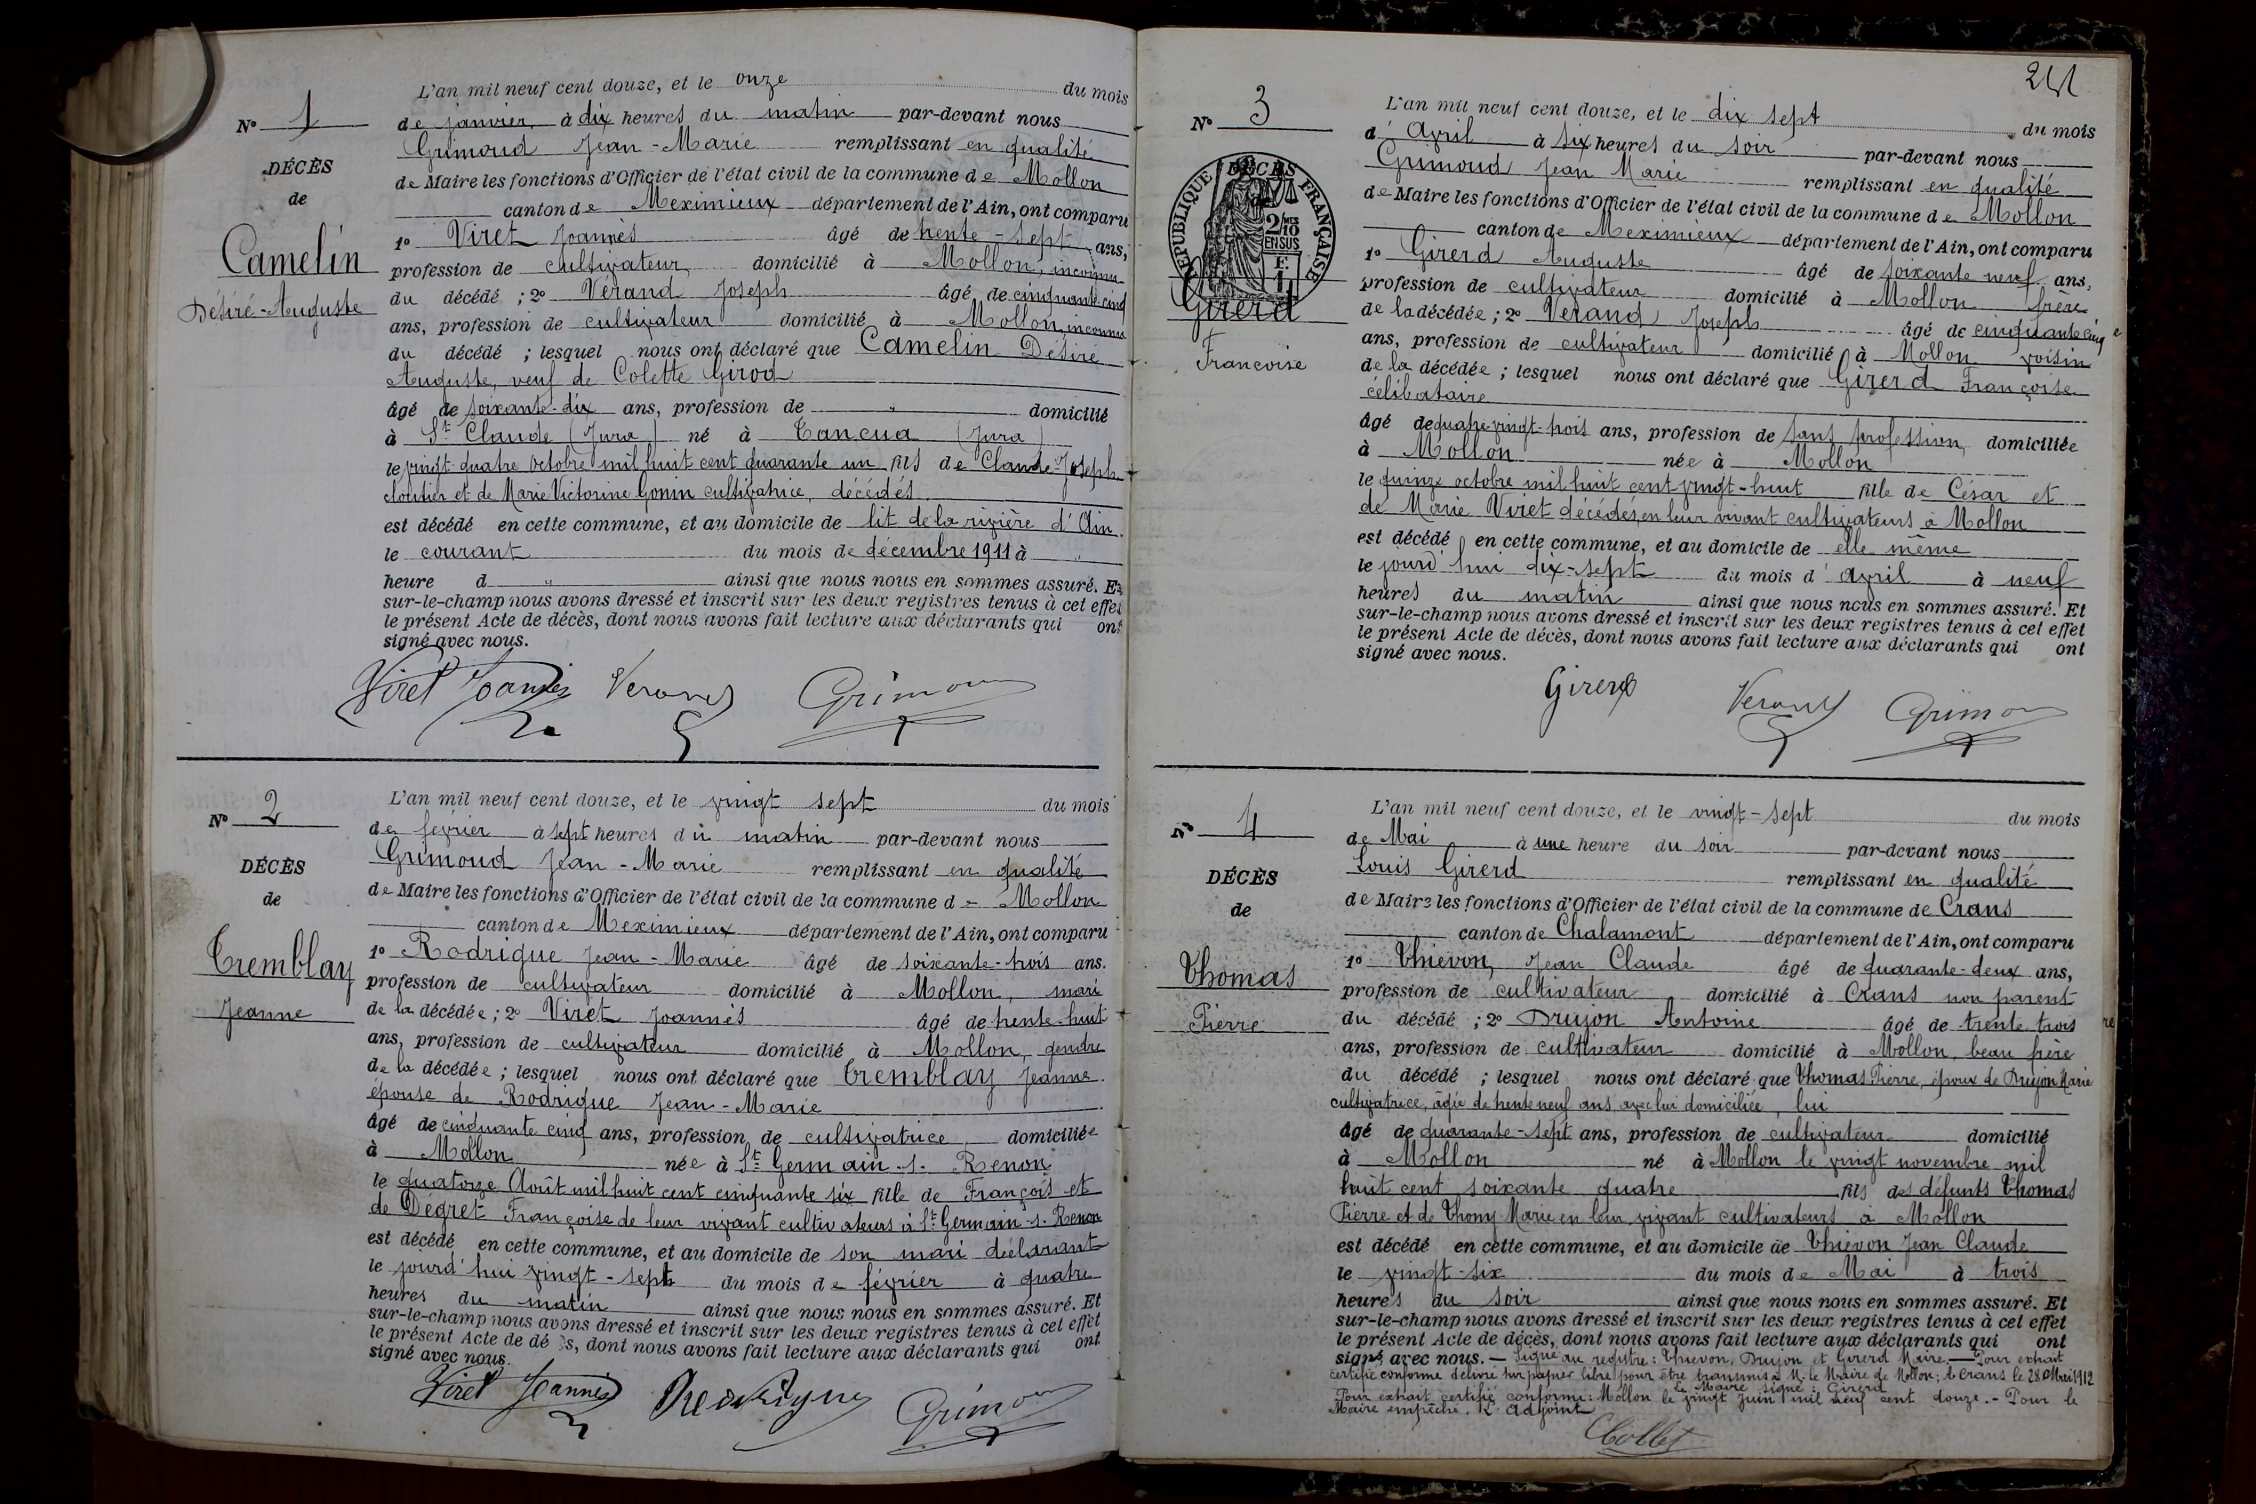 N° 1
DÉCÈS
de
Camelin
Désiré-Auguste
L'an mil neuf cent douze, et le onze du mois
de janvier à dix heures du matin par-devant nous
Grimoud Jean-Marie remplissant en qualité
de Maire les fonctions d'Officier de l'état civil de la commune de Mollon
canton de Meximieux département de l'Ain, ont comparu
1° Viret Joannès âgé de trente-sept ans,
profession de cultivateur domicilié à Mollon, inconnu
du décédé ; 2° Verand Joseph âgé de cinquante-cinq
ans, profession de cultivateur domicilié à Mollon, inconnu
du décédé ; lesquel nous ont déclaré que Camelin Désiré
Auguste, veuf de Colette Girod
âgé de soixante-dix ans, profession de " domicilié
à St Claude (Jura) né à Tancua (Jura)
le vingt-quatre octobre mil huit cent quarante un fils de Claude-Joseph
cloutier et de Marie Victorine Gonin cultivatrice, décédés.
est décédé en cette commune, et au domicile de lit de la rivière d'Ain.
le courant du mois de décembre 1911 à "
heure d " ainsi que nous nous en sommes assuré. Et
sur-le-champ nous avons dressé et inscrit sur les deux registres tenus à cet effet
le présent Acte de décès, dont nous avons fait lecture aux déclarants qui ont
signé avec nous.
Viret Joannès Verand Grimoud
N° 2
DÉCÈS
de
Tremblay
Jeanne
L'an mil neuf cent douze, et le vingt sept du mois
de février à sept heures du matin par-devant nous
Grimoud Jean-Marie remplissant en qualité
de Maire les fonctions d'Officier de l'état civil de la commune de Mollon
canton de Meximieux département de l'Ain, ont comparu
1° Rodrigue Jean-Marie âgé de soixante-trois ans.
profession de cultivateur domicilié à Mollon, mari
de la décédée ; 2° Viret Joannès âgé de trente-huit
ans, profession de cultivateur domicilié à Mollon, gendre
de la décédée ; lesquel nous ont déclaré que Tremblay Jeanne.
épouse de Rodrigue Jean-Marie
âgé de cinquante cinq ans, profession de cultivatrice domiciliée
à Mollon née à St Germain-s-Renon
le quatorze Août mil huit cent cinquante six fille de François et
de Dégret Françoise de leur vivant cultivateurs à St Germain-s-Renon
est décédé en cette commune, et au domicile de son mari déclarant
le jourd'hui vingt-sept du mois de février à quatre
heures du matin ainsi que nous nous en sommes assuré. Et
sur-le-champ nous avons dressé et inscrit sur les deux registres tenus à cet effet
le présent Acte de dé s, dont nous avons fait lecture aux déclarants qui ont
signé avec nous.
Viret Joannès Rodrigue Grimoud
241
N° 3
RÉPUBLIQUE FRANÇAISE
DÉCÈS
de
2/10 EN SUS
Girerd
Françoise
L'an mil neuf cent douze, et le dix sept du mois
d'Avril à six heures du soir par-devant nous
Grimoud Jean Marie remplissant en qualité
de Maire les fonctions d'Officier de l'état civil de la commune de Mollon
canton de Meximieux département de l'Ain, ont comparu
1° Girerd Auguste âgé de soixante neuf ans,
profession de cultivateur domicilié à Mollon frère
de la décédée ; 2° Verand Joseph âgé de cinquante cinq
ans, profession de cultivateur domicilié à Mollon voisin
de la décédée ; lesquel nous ont déclaré que Girerd Françoise
célibataire
âgé de quatre vingt-trois ans, profession de sans profession domiciliée
à Mollon née à Mollon
le quinze octobre mil huit cent vingt-huit fille de César et
de Marie Viret décédés, en leur vivant cultivateurs à Mollon
est décédé en cette commune, et au domicile de elle même
le jourd'hui dix-sept du mois d'avril à neuf
heures du matin ainsi que nous nous en sommes assuré. Et
sur-le-champ nous avons dressé et inscrit sur les deux registres tenus à cet effet
le présent Acte de décès, dont nous avons fait lecture aux déclarants qui ont
signé avec nous.
Girerd Verand Grimoud
N° 4
DÉCÈS
de
Thomas
Pierre
L'an mil neuf cent douze, et le vingt-sept du mois
de Mai à une heure du soir par-devant nous
Louis Girerd remplissant en qualité
de Maire les fonctions d'Officier de l'état civil de la commune de Crans
canton de Chalamont département de l'Ain, ont comparu
1° Thievon, Jean Claude âgé de quarante-deux ans,
profession de cultivateur domicilié à Crans non parent
du décédé ; 2° Drujon Antoine âgé de trente trois
ans, profession de cultivateur domicilié à Mollon, beau frère
du décédé ; lesquel nous ont déclaré que Thomas Pierre, époux de Drujon Marie
cultivatrice, âgée de trente neuf ans avec lui domiciliée, lui
âgé de quarante-sept ans, profession de cultivateur domicilié
à Mollon né à Mollon le vingt novembre mil
huit cent soixante quatre fils des défunts Thomas
Pierre et de Thony Marie en leur vivant cultivateurs à Mollon
est décédé en cette commune, et au domicile de Thievon Jean Claude
le vingt-six du mois de Mai à trois
heures du soir ainsi que nous nous en sommes assuré. Et
sur-le-champ nous avons dressé et inscrit sur les deux registres tenus à cet effet
le présent Acte de décès, dont nous avons fait lecture aux déclarants qui ont
signé avec nous. — Signé au registre : Thievon, Drujon et Girerd Maire — Pour extrait
certifié conforme délivré sur papier libre pour être transmis à M. le Maire de Mollon ; à Crans le 28 Mai 1912
le Maire signé : Girerd
Pour extrait certifié conforme : Mollon le vingt Juin mil neuf cent douze. - Pour le
Maire empêché. L'adjoint
Collet